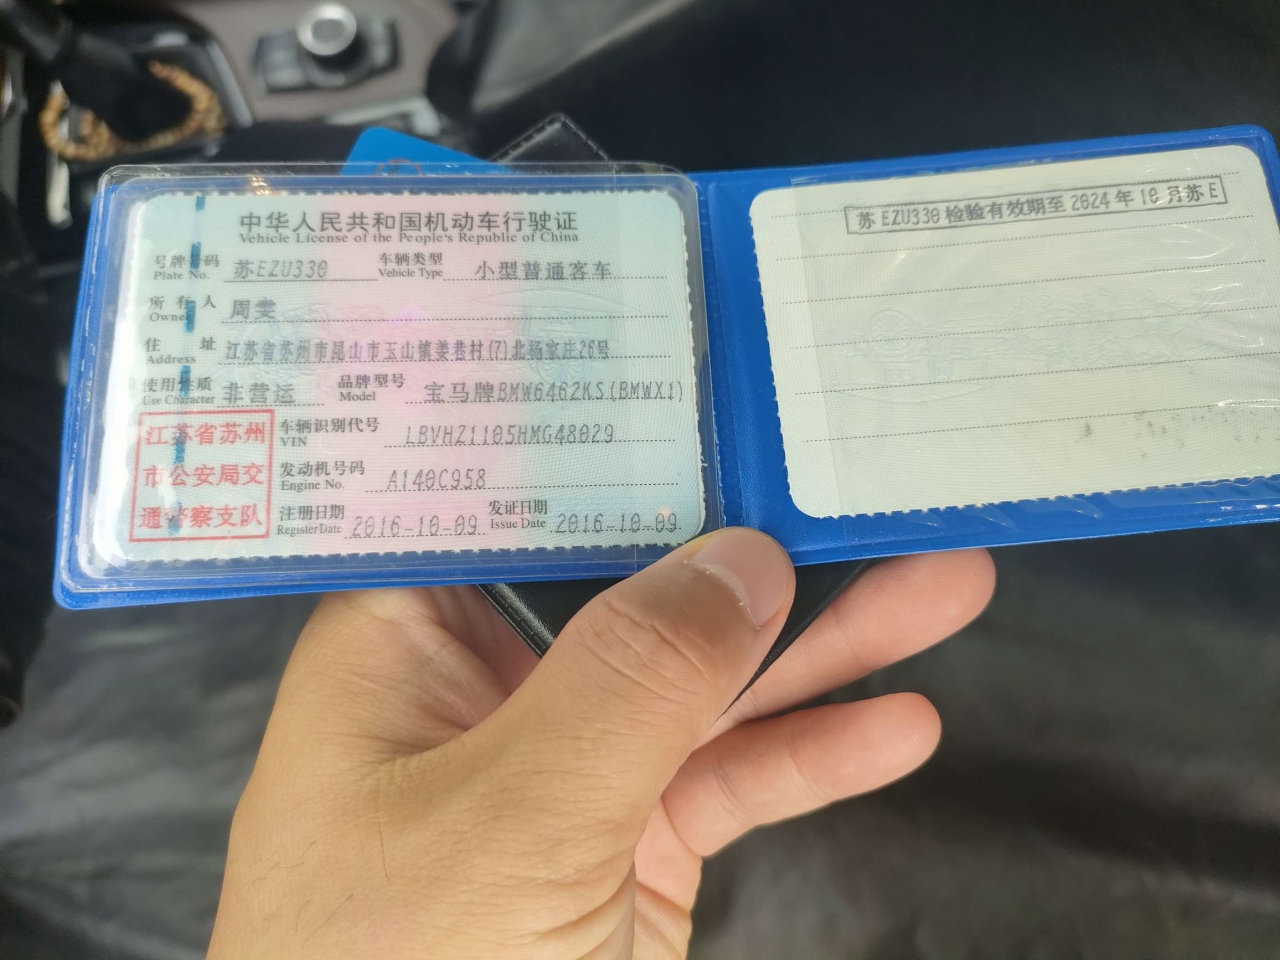 中华人民共和国机动车行驶证
Vehicle License of the People's Republic of China
号牌号码 苏EZU330 车辆类型 小型普通客车
Plate No. Vehicle Type
所有人 周雯
Owner
住址 江苏省苏州市昆山市玉山镇姜巷村(7)北杨家庄26号
Address
使用性质 非营运 品牌型号 宝马牌BMW6462KS(BMWX1)
Use Character Model
江苏省苏州
市公安局交
通警察支队
车辆识别代号 LBVHZ1105HMG48029
VIN
发动机号码 A140C958
Engine No.
注册日期 2016-10-09 发证日期 2016-10-09
Register Date Issue Date
苏EZU330检验有效期至2024年10月苏E